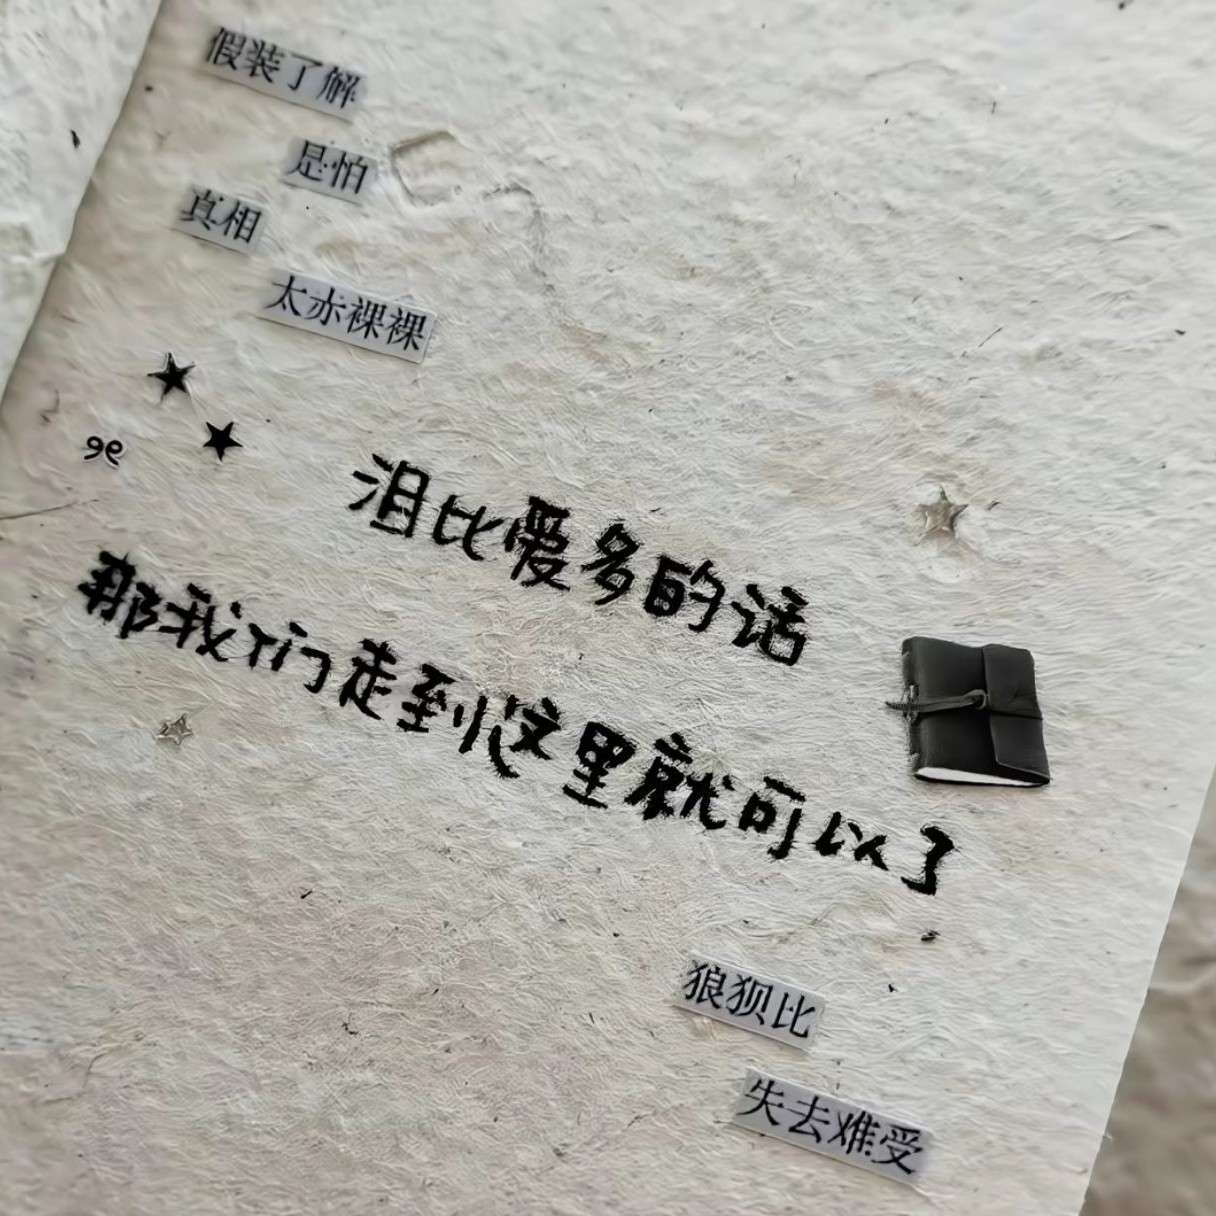 假装了解
是怕
真相
太赤裸裸
泪比爱多的话
那我们走到这里就可以了
狼狈比
失去难受